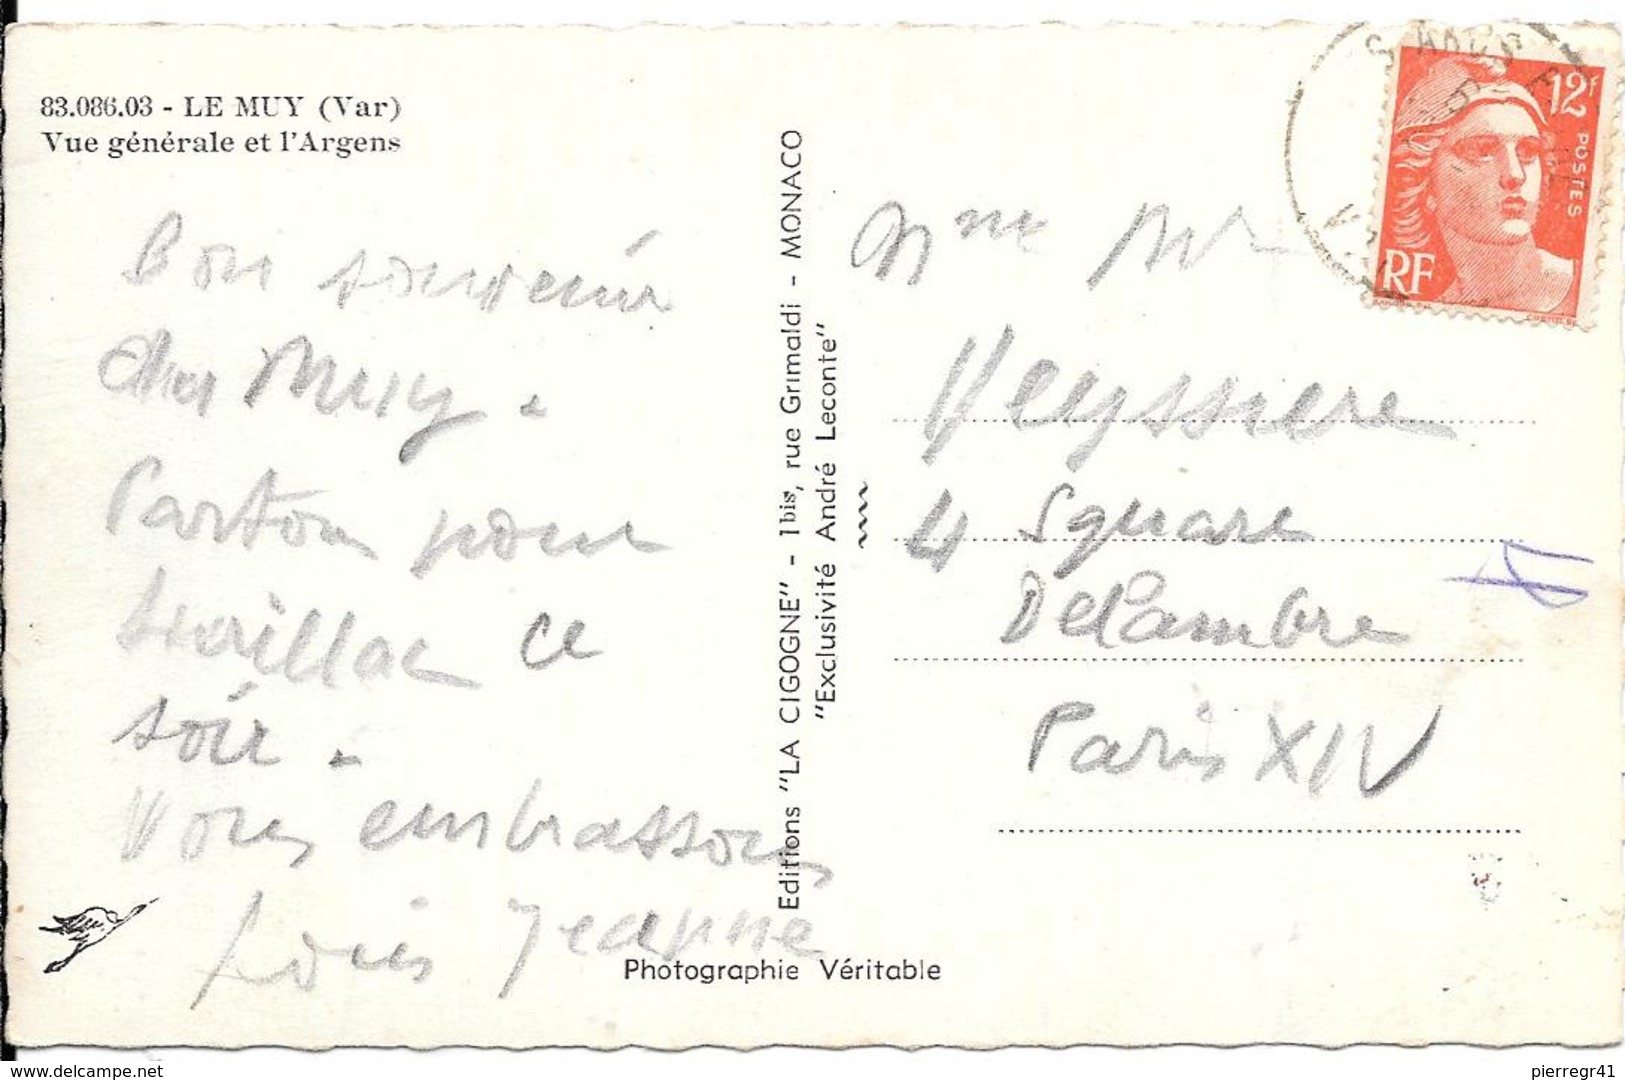 83.086.03 - LE MUY (Var)
Vue générale et l'Argens
Bon souvenir
du Muy.
Partons pour
ce
soir.
Vous embrassons
Louis Jeanne
Editions "LA CIGOGNE" - 1bis, rue Grimaldi - MONACO
"Exclusivité André Leconte"
Photographie Véritable
12f
POSTES
RF
Mme
Veyssiere
4 Square
Delambre
Paris XIV
www.delcampe.net
pierregr41